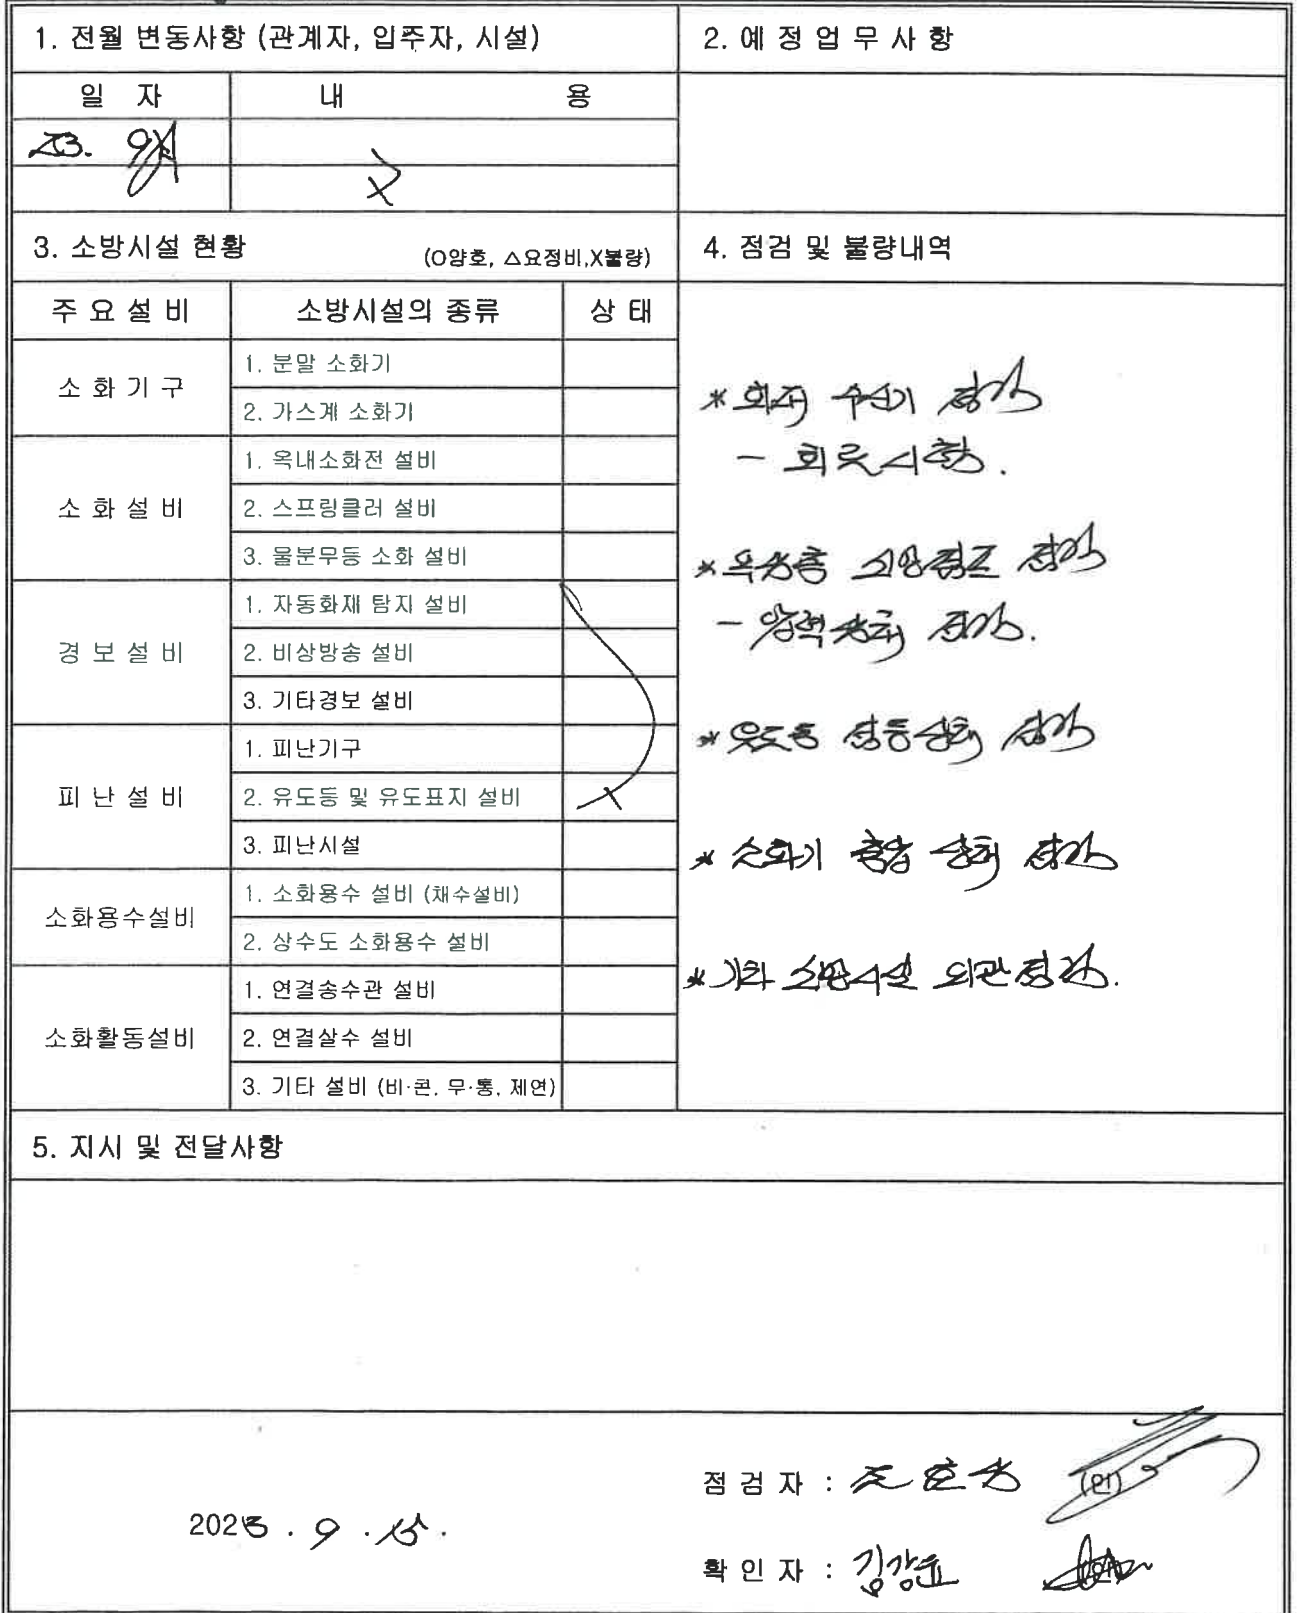 1. 전월 변동사항 (관계자, 입주자, 시설)
2. 예 정 업 무 사 항
일 자
내 용
23. 9월
3. 소방시설 현황 (O양호, △요정비,X불량)
4. 점검 및 불량내역
주 요 설 비
소방시설의 종류
상 태
소 화 기 구
1. 분말 소화기
2. 가스계 소화기
소 화 설 비
1. 옥내소화전 설비
2. 스프링클러 설비
3. 물분무등 소화 설비
경 보 설 비
1. 자동화재 탐지 설비
2. 비상방송 설비
3. 기타경보 설비
피 난 설 비
1. 피난기구
2. 유도등 및 유도표지 설비
3. 피난시설
소화용수설비
1. 소화용수 설비 (채수설비)
2. 상수도 소화용수 설비
소화활동설비
1. 연결송수관 설비
2. 연결살수 설비
3. 기타 설비 (비·콘, 무·통, 제연)
* 화재 수신기 점검
- 회로시험.
* 옥상층 소방펌프 점검
- 압력상태 점검.
* 유도등 점등상태 점검
* 소화기 충압 상태 점검
* 기타 소방시설 외관점검.
5. 지시 및 전달사항
2023 . 9 . 15 .
점 검 자 : (인)
확 인 자 : 김강윤